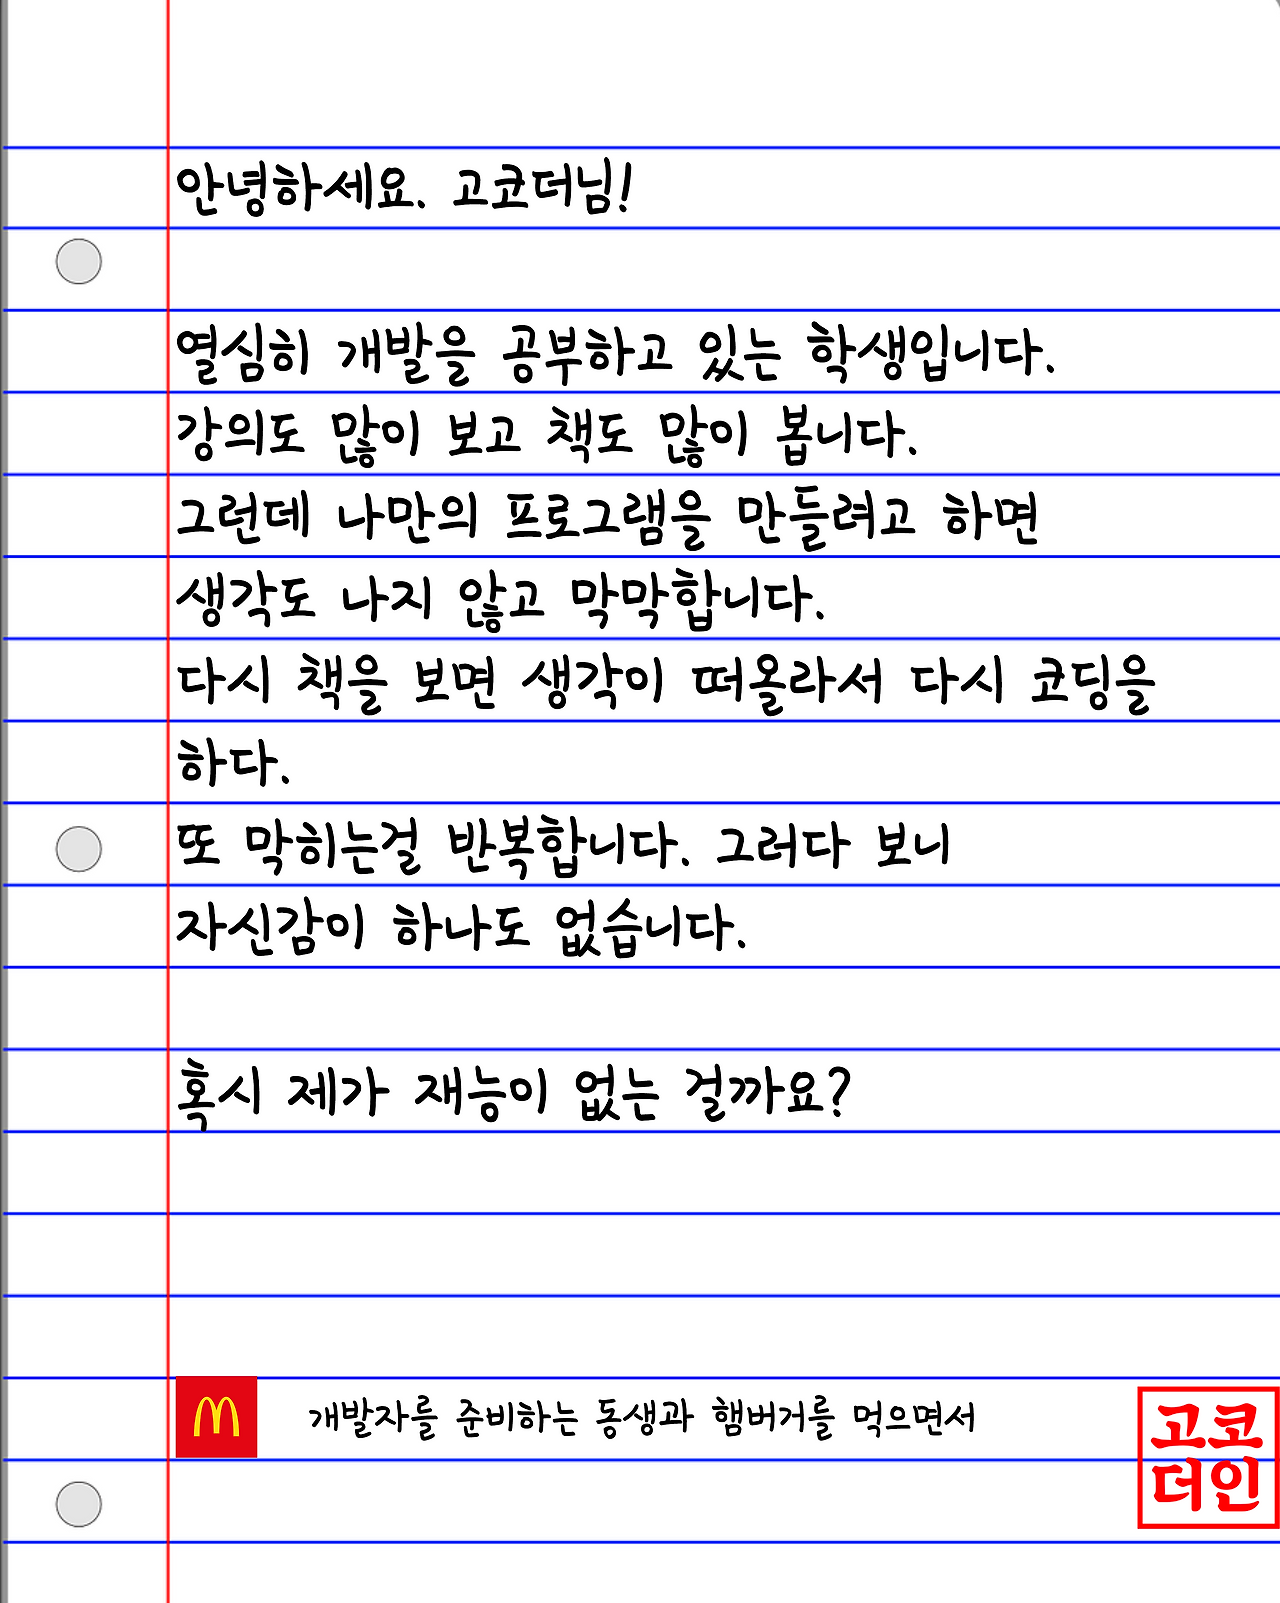 안녕하세요. 고코더님!
열심히 개발을 공부하고 있는 학생입니다.
강의도 많이 보고 책도 많이 봅니다.
그런데 나만의 프로그램을 만들려고 하면
생각도 나지 않고 막막합니다.
다시 책을 보면 생각이 떠올라서 다시 코딩을
하다.
또 막히는걸 반복합니다. 그러다 보니
자신감이 하나도 없습니다.
혹시 제가 재능이 없는 걸까요?
개발자를 준비하는 동생과 햄버거를 먹으면서
고코
더인